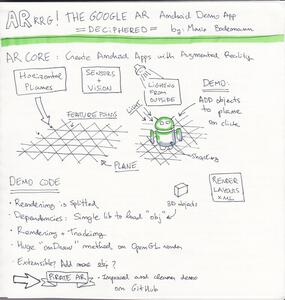 ARrrg! THE GOOGLE AR Android Demo App
= DECIPHERED =
by: Mario Bodemann
AR CORE: Create Android Apps with Augmented Reality
Horizontal
PLANES
SENSORS
+
VISION
LIGHTING
FROM
OUTSIDE
DEMO:
ADD objects
to plane
on click
FEATURE POINTS
LIGHT
PLANE
Shading
DEMO CODE
• Rendering is splitted
• Dependencies: Simple lib to load "obj"
3D objects
RENDER
LAYOUTS
XML
• Rendering + Tracking
• Huge "onDraw" method on OpenGL render
• Extensible? Add more
PIRATE AR
• Improved and cleaner demo
on GitHub